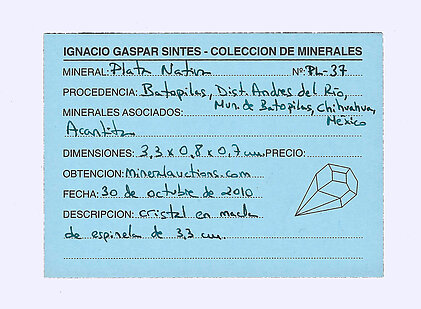 IGNACIO GASPAR SINTES - COLECCION DE MINERALES
MINERAL: Plata Nativa Nº: PL-37
PROCEDENCIA: Batopilas, Dist. Andres del Río,
Mun. de Batopilas, Chihuahua,
MINERALES ASOCIADOS: México
Acantita
DIMENSIONES: 3,3 x 0,8 x 0,7 cm PRECIO:
OBTENCION: Mineralauctions.com
FECHA: 30 de octubre de 2010
DESCRIPCION: cristal en macla
de espinela de 3,3 cm